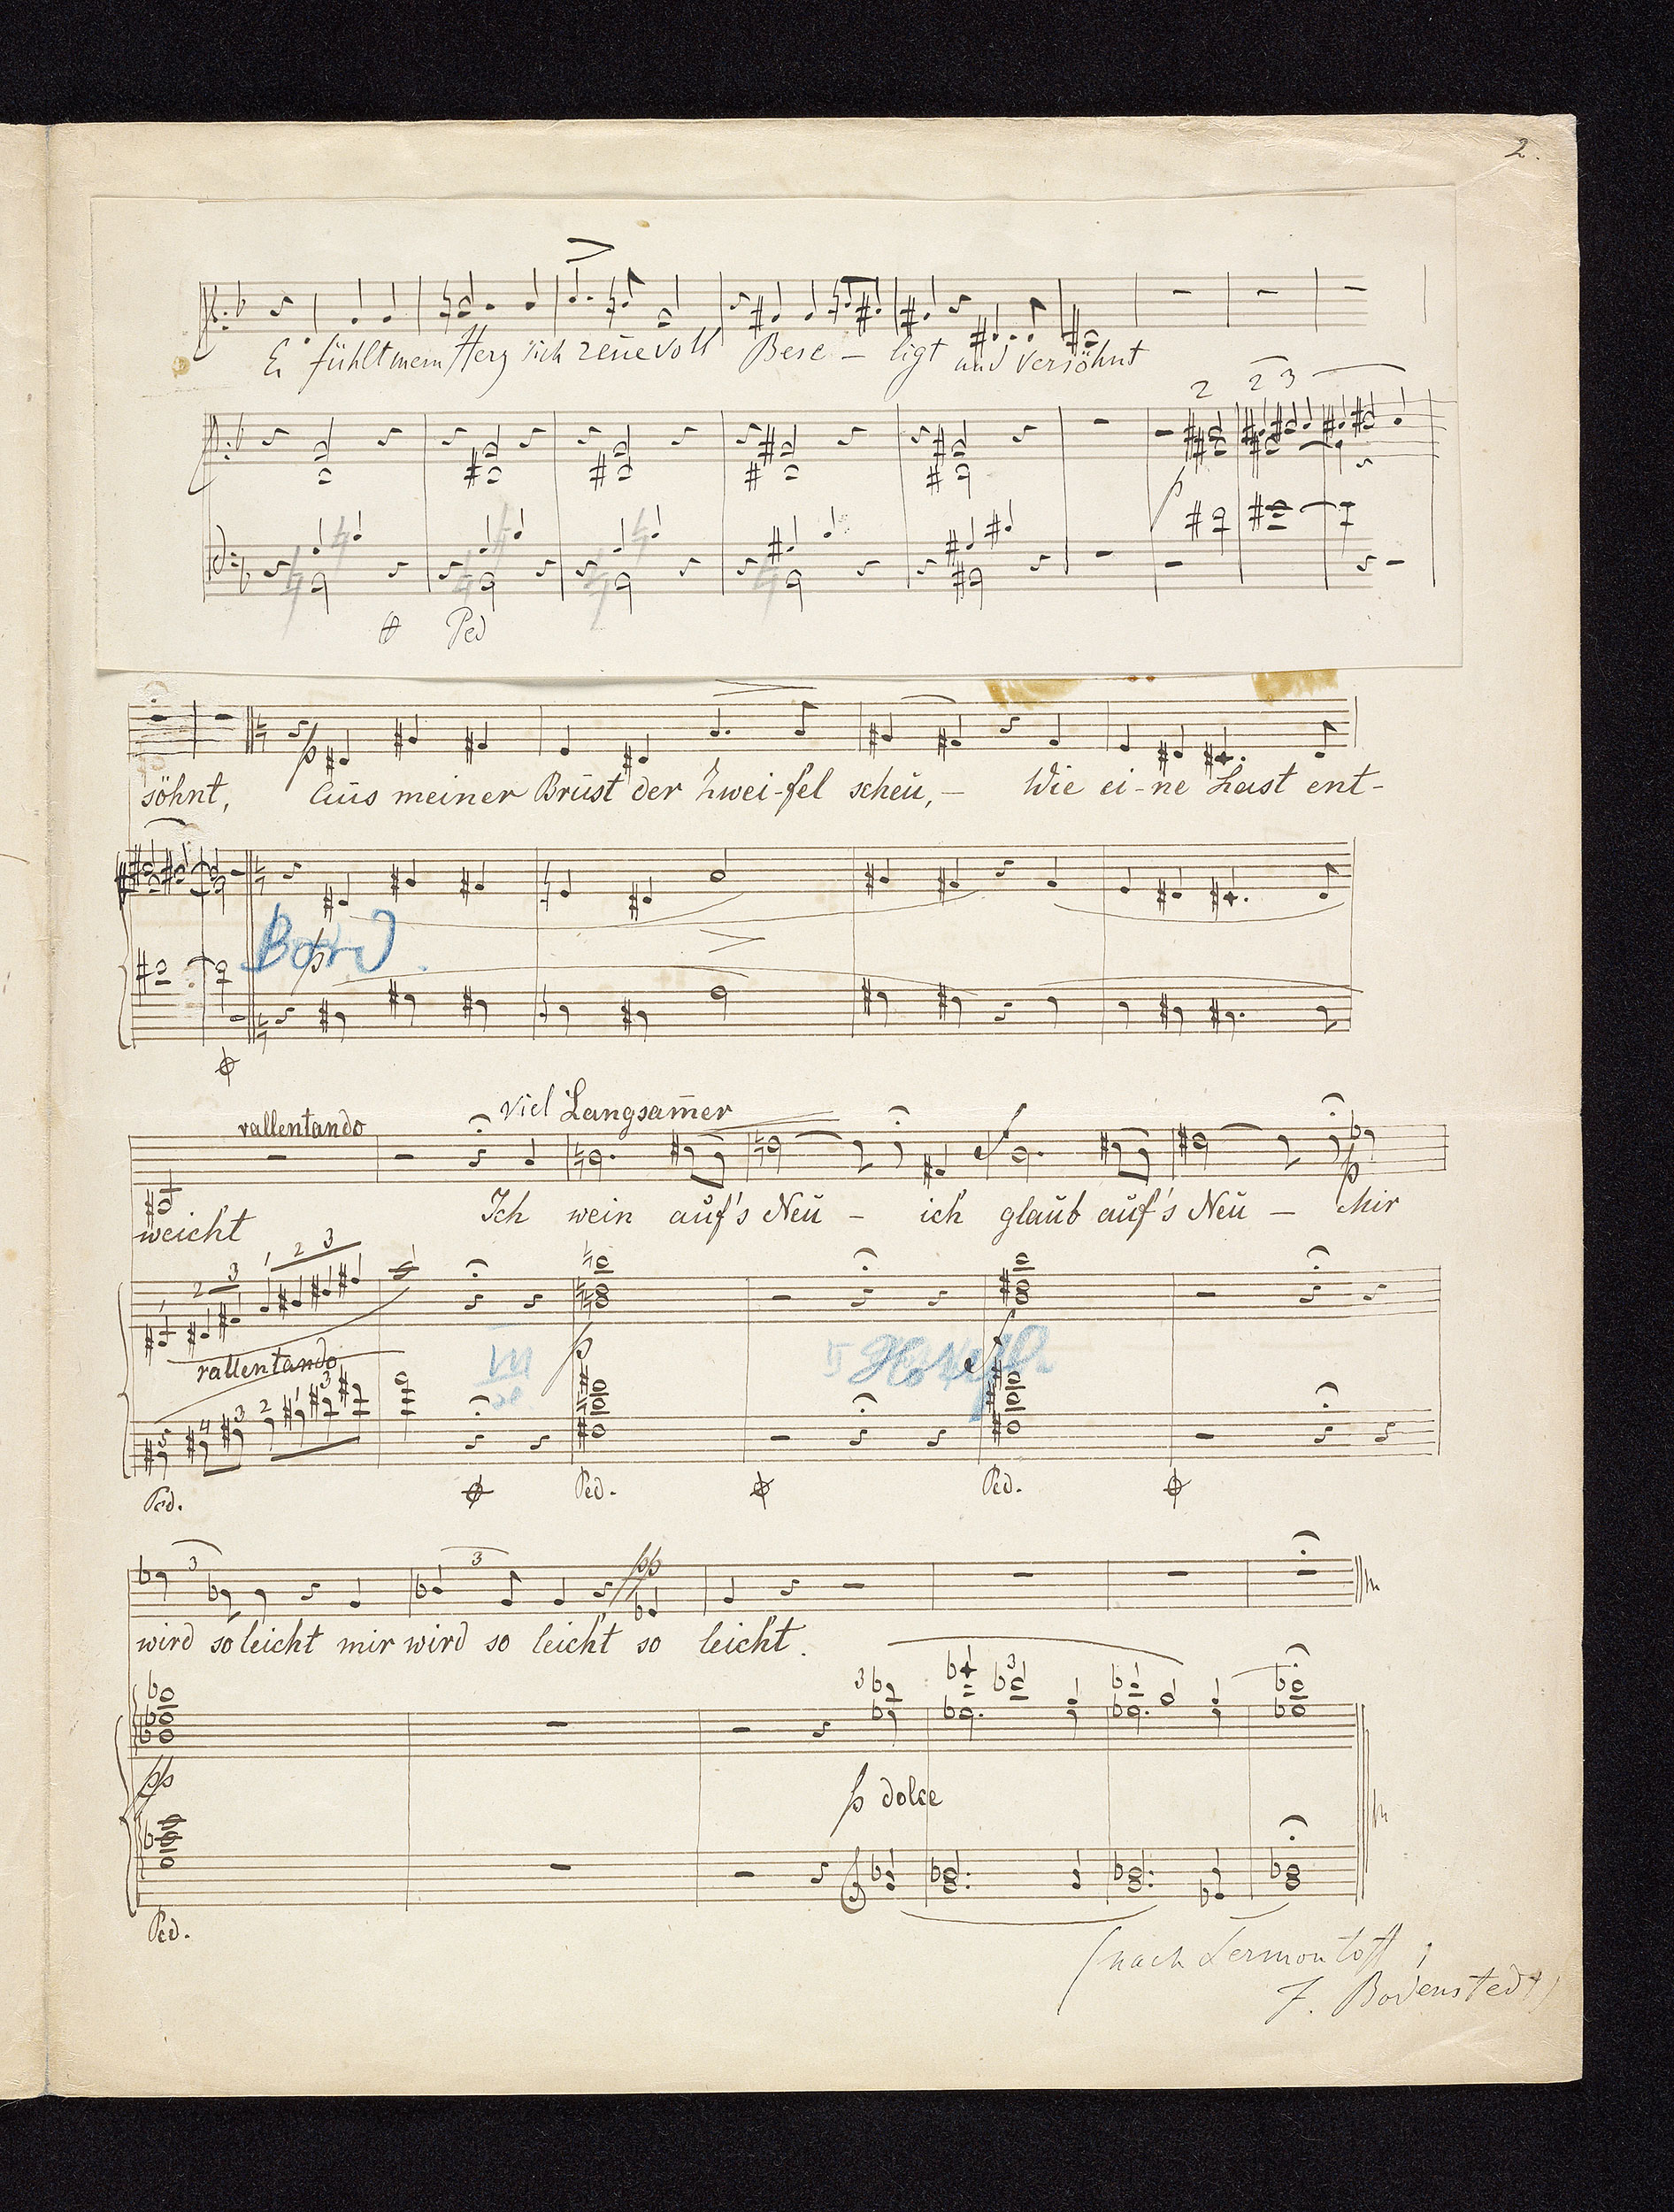 2.
fühlt mein Herz sich reūevoll Bese - ligt und versöhnt
2 2 3
p
Ped
p
söhnt, Aūs meiner Brūst der Zwei-fel scheū, - Wie ei-ne Last ent-
p
rallentando viel Langsam̄er
f p
weicht Ich wein aūf's Neū - ich glaūb aūf's Neū - Mir
1 2 3 1 2 3
rallentando
p f
5 4 3 2 1 3
Ped. Ped. Ped.
3 3 pp
wird so leicht mir wird so leicht so leicht.
3 3
pp
p dolce
Ped.
(nach Lermontoff,
F. Bodenstedt)